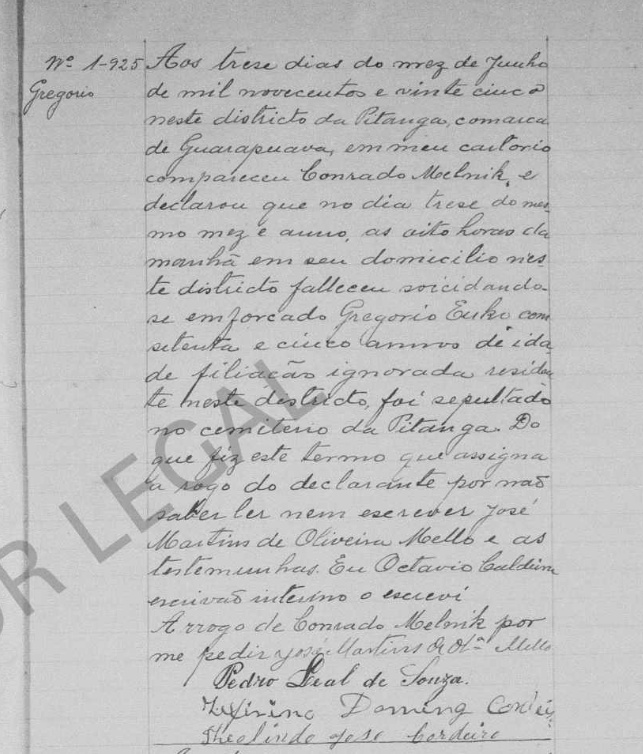 Nº 1-925
Gregorio
Aos trese dias do mez de Junho
de mil novecentos e vinte cinco
neste districto da Pitanga, comarca
de Guarapuava, em meu cartorio
compareceu Conrado Melnik, e
declarou que no dia trese do mes-
mo mez e anno, as oito horas da
manhã em seu domicilio nes-
te districto falleceu soicidando-
se emforcado Gregorio Euko com
setenta e cinco annos de ida-
de filiacão ignorada residen
te neste districto, foi sepultado
no cemiterio da Pitanga. Do
que fiz este termo que assigna
a rogo do declarante por não
saber ler nem escrever José
Martins de Oliveira Mello e as
testemunhas. Eu Octavio
escrivão interino o escrevi
Arrogo de Conrado Melnik por
me pedir José Martins de Olª Mello
Pedro Leal de Souza.
Zeferino Doming
Theolindo Jose Cordeiro
OR LEGAL